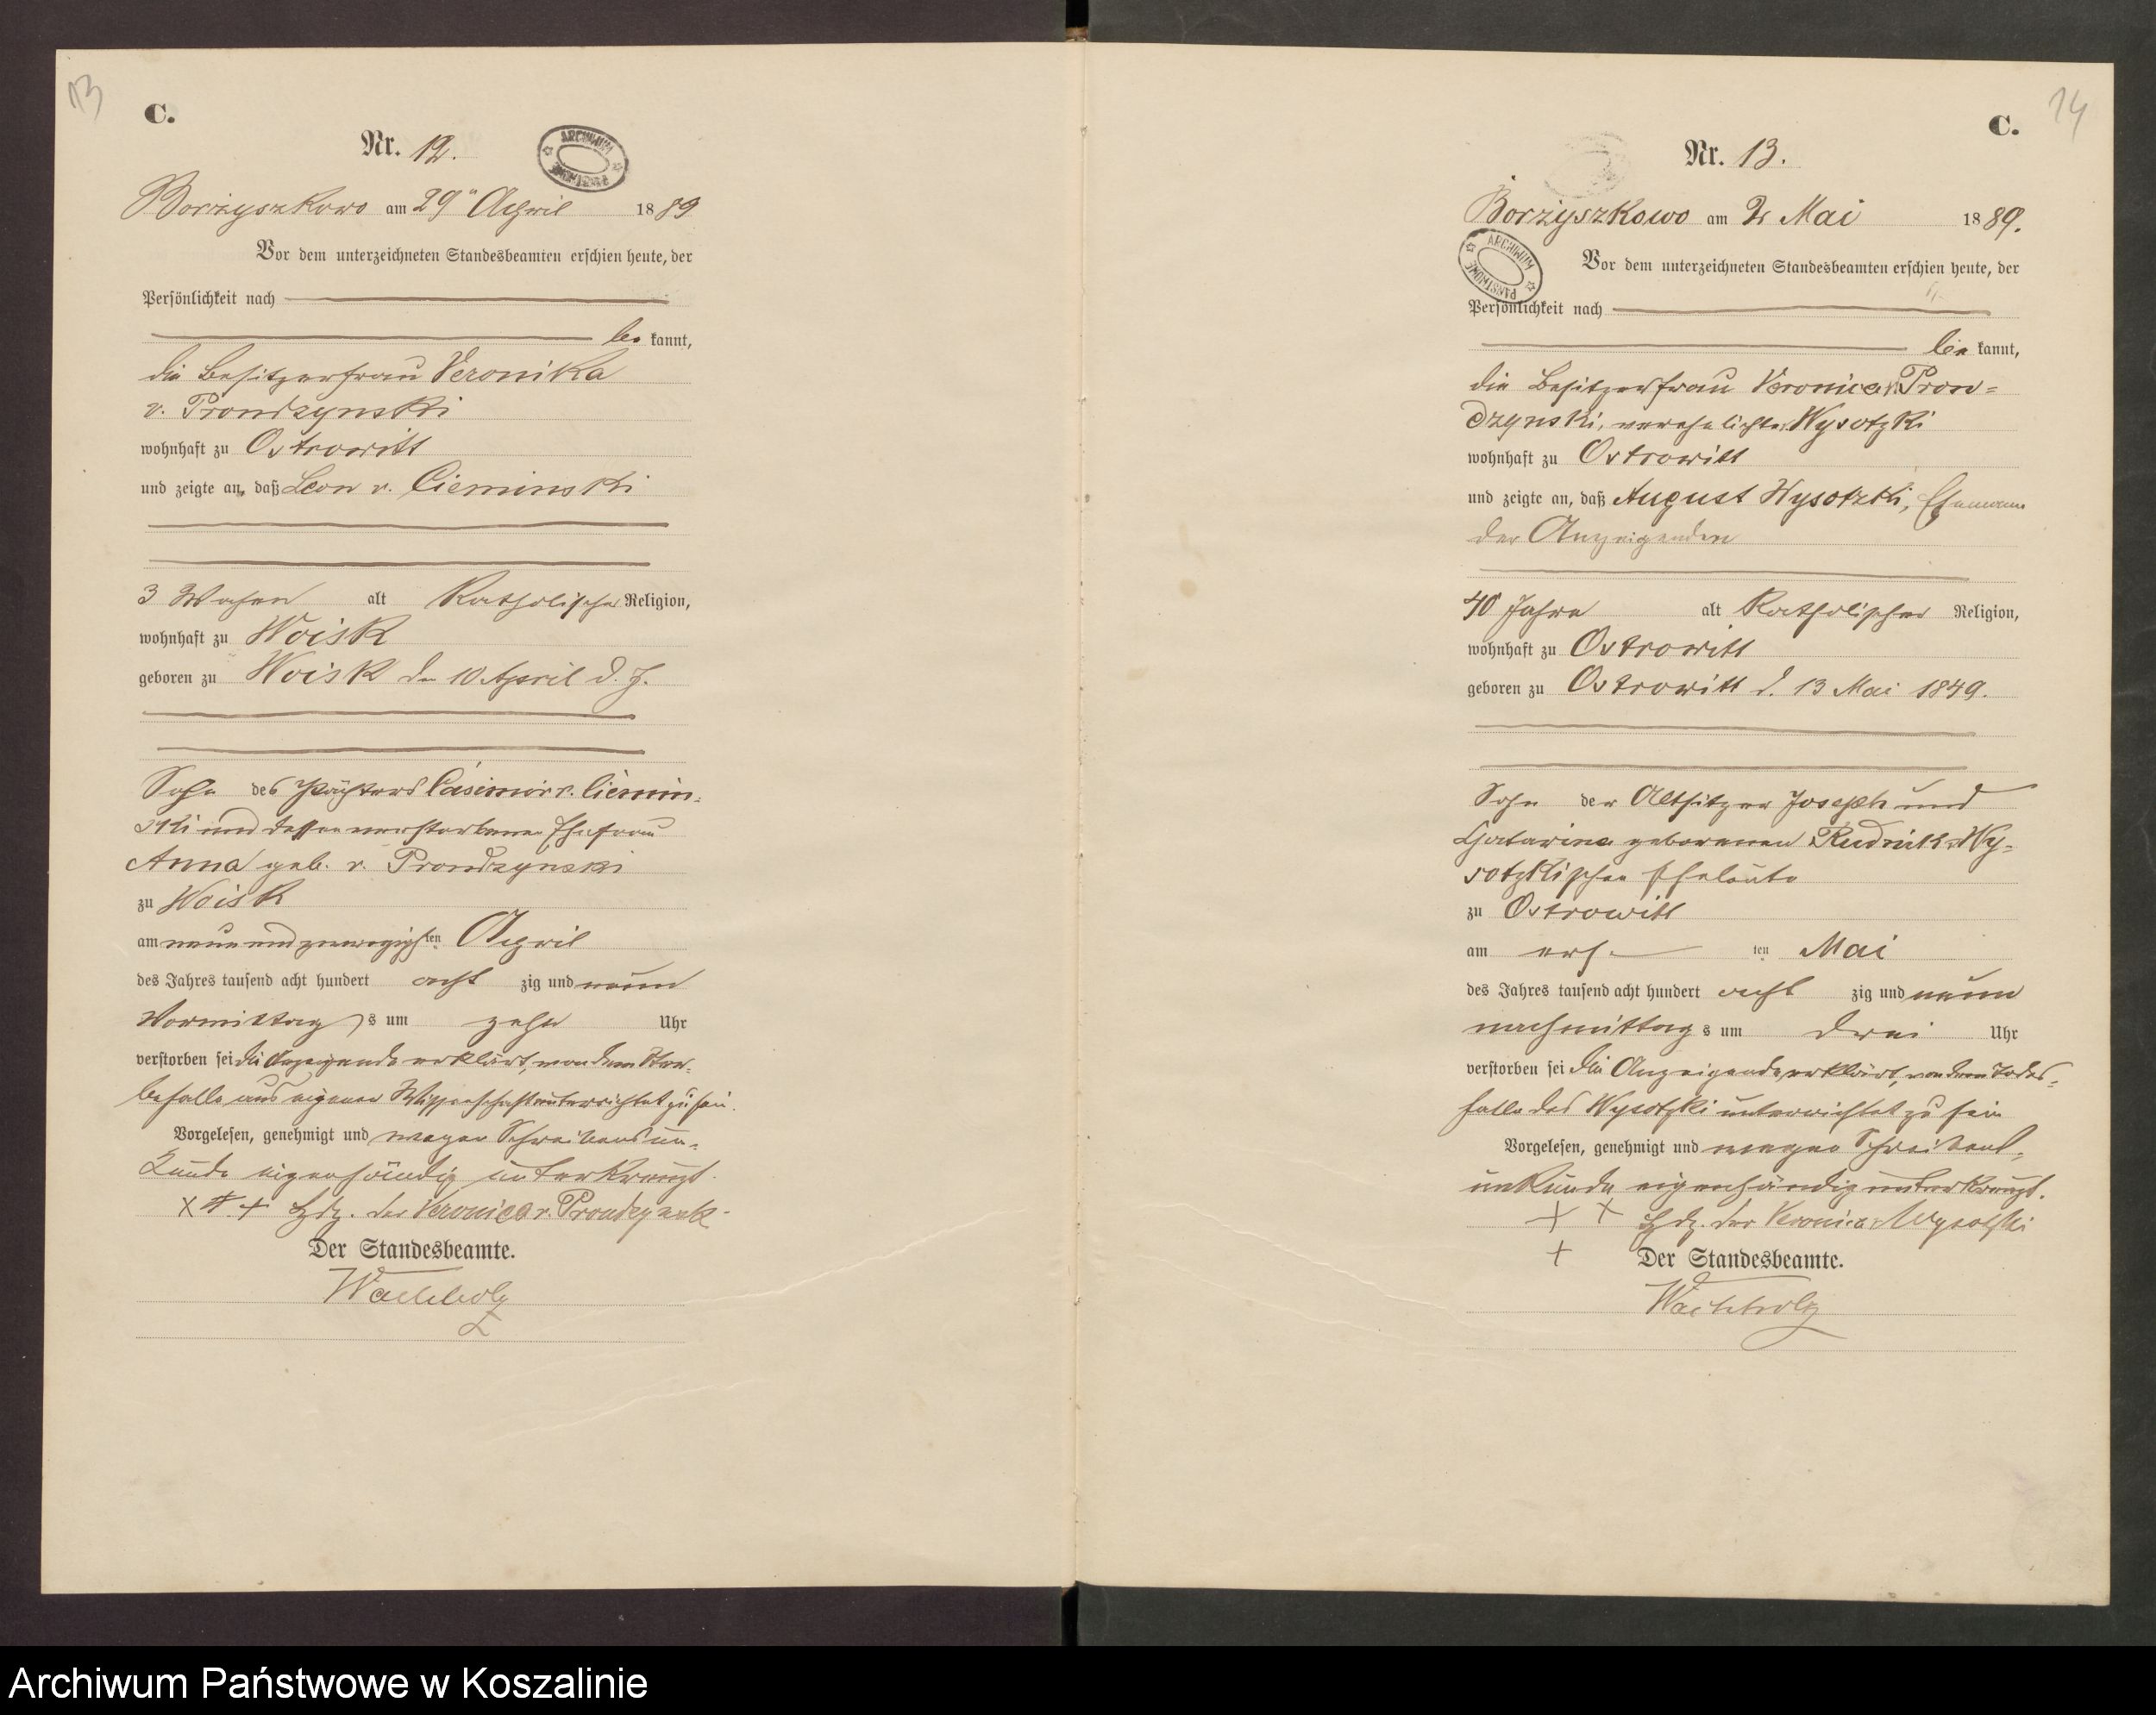 13
C.
Nr. 12.
ARCHIWUM PAŃSTWOWE
Borzyszkowo am 29ten April 1889
Vor dem unterzeichneten Standesbeamten erschien heute, der
Persönlichkeit nach
be kannt,
die Besitzerfrau Veronika
v. Prondzynski
wohnhaft zu Ostrowitt
und zeigte an, daß Leon v. Cieminski
3 Wochen alt Katholischer Religion,
wohnhaft zu Woisk
geboren zu Woisk den 10 April d. J.
Sohn des Pächters Casimir v. Ciemin-
ski und dessen verstorbenen Ehefrau
Anna geb. v. Prondzynski
zu Woisk
am neun und zwanzigsten April
des Jahres tausend acht hundert acht zig und neun
Vormittag s um zehn Uhr
verstorben sei die Anzeigende erklärt, von dem Ster-
befalle aus eigener Wissenschaft unterrichtet zu sein.
Vorgelesen, genehmigt und wegen Schreibensun-
kunde eigenhändig unterkreuzt.
+ + + Hdz. der Veronica v. Prondzynski
Der Standesbeamte.
Wachholz
14
C.
Nr. 13.
Borzyszkowo am 2 Mai 1889.
ARCHIWUM PAŃSTWOWE
Vor dem unterzeichneten Standesbeamten erschien heute, der
Persönlichkeit nach
be kannt,
die Besitzerfrau Veronica v. Pron-
dzynski, verehelichte Wysotzki
wohnhaft zu Ostrowitt
und zeigte an, daß August Wysotzki, Ehemann
der Anzeigenden
40 Jahre alt Katholischer Religion,
wohnhaft zu Ostrowitt
geboren zu Ostrowitt d. 13 Mai 1849.
Sohn der Altsitzer Joseph und
Catarina geborenen Rudnik Wy-
sotzkischen Eheleute
zu Ostrowitt
am ers ten Mai
des Jahres tausend acht hundert acht zig und neun
nachmittag s um drei Uhr
verstorben sei die Anzeigende erklärt, von dem Todes-
falle des Wysotzki unterrichtet zu sein
Vorgelesen, genehmigt und wegen Schreibens-
unkunde eigenhändig unterkreuzt.
+ + Hdz. der Veronica Wysotzki
+ Der Standesbeamte.
Wachholz
Archiwum Państwowe w Koszalinie